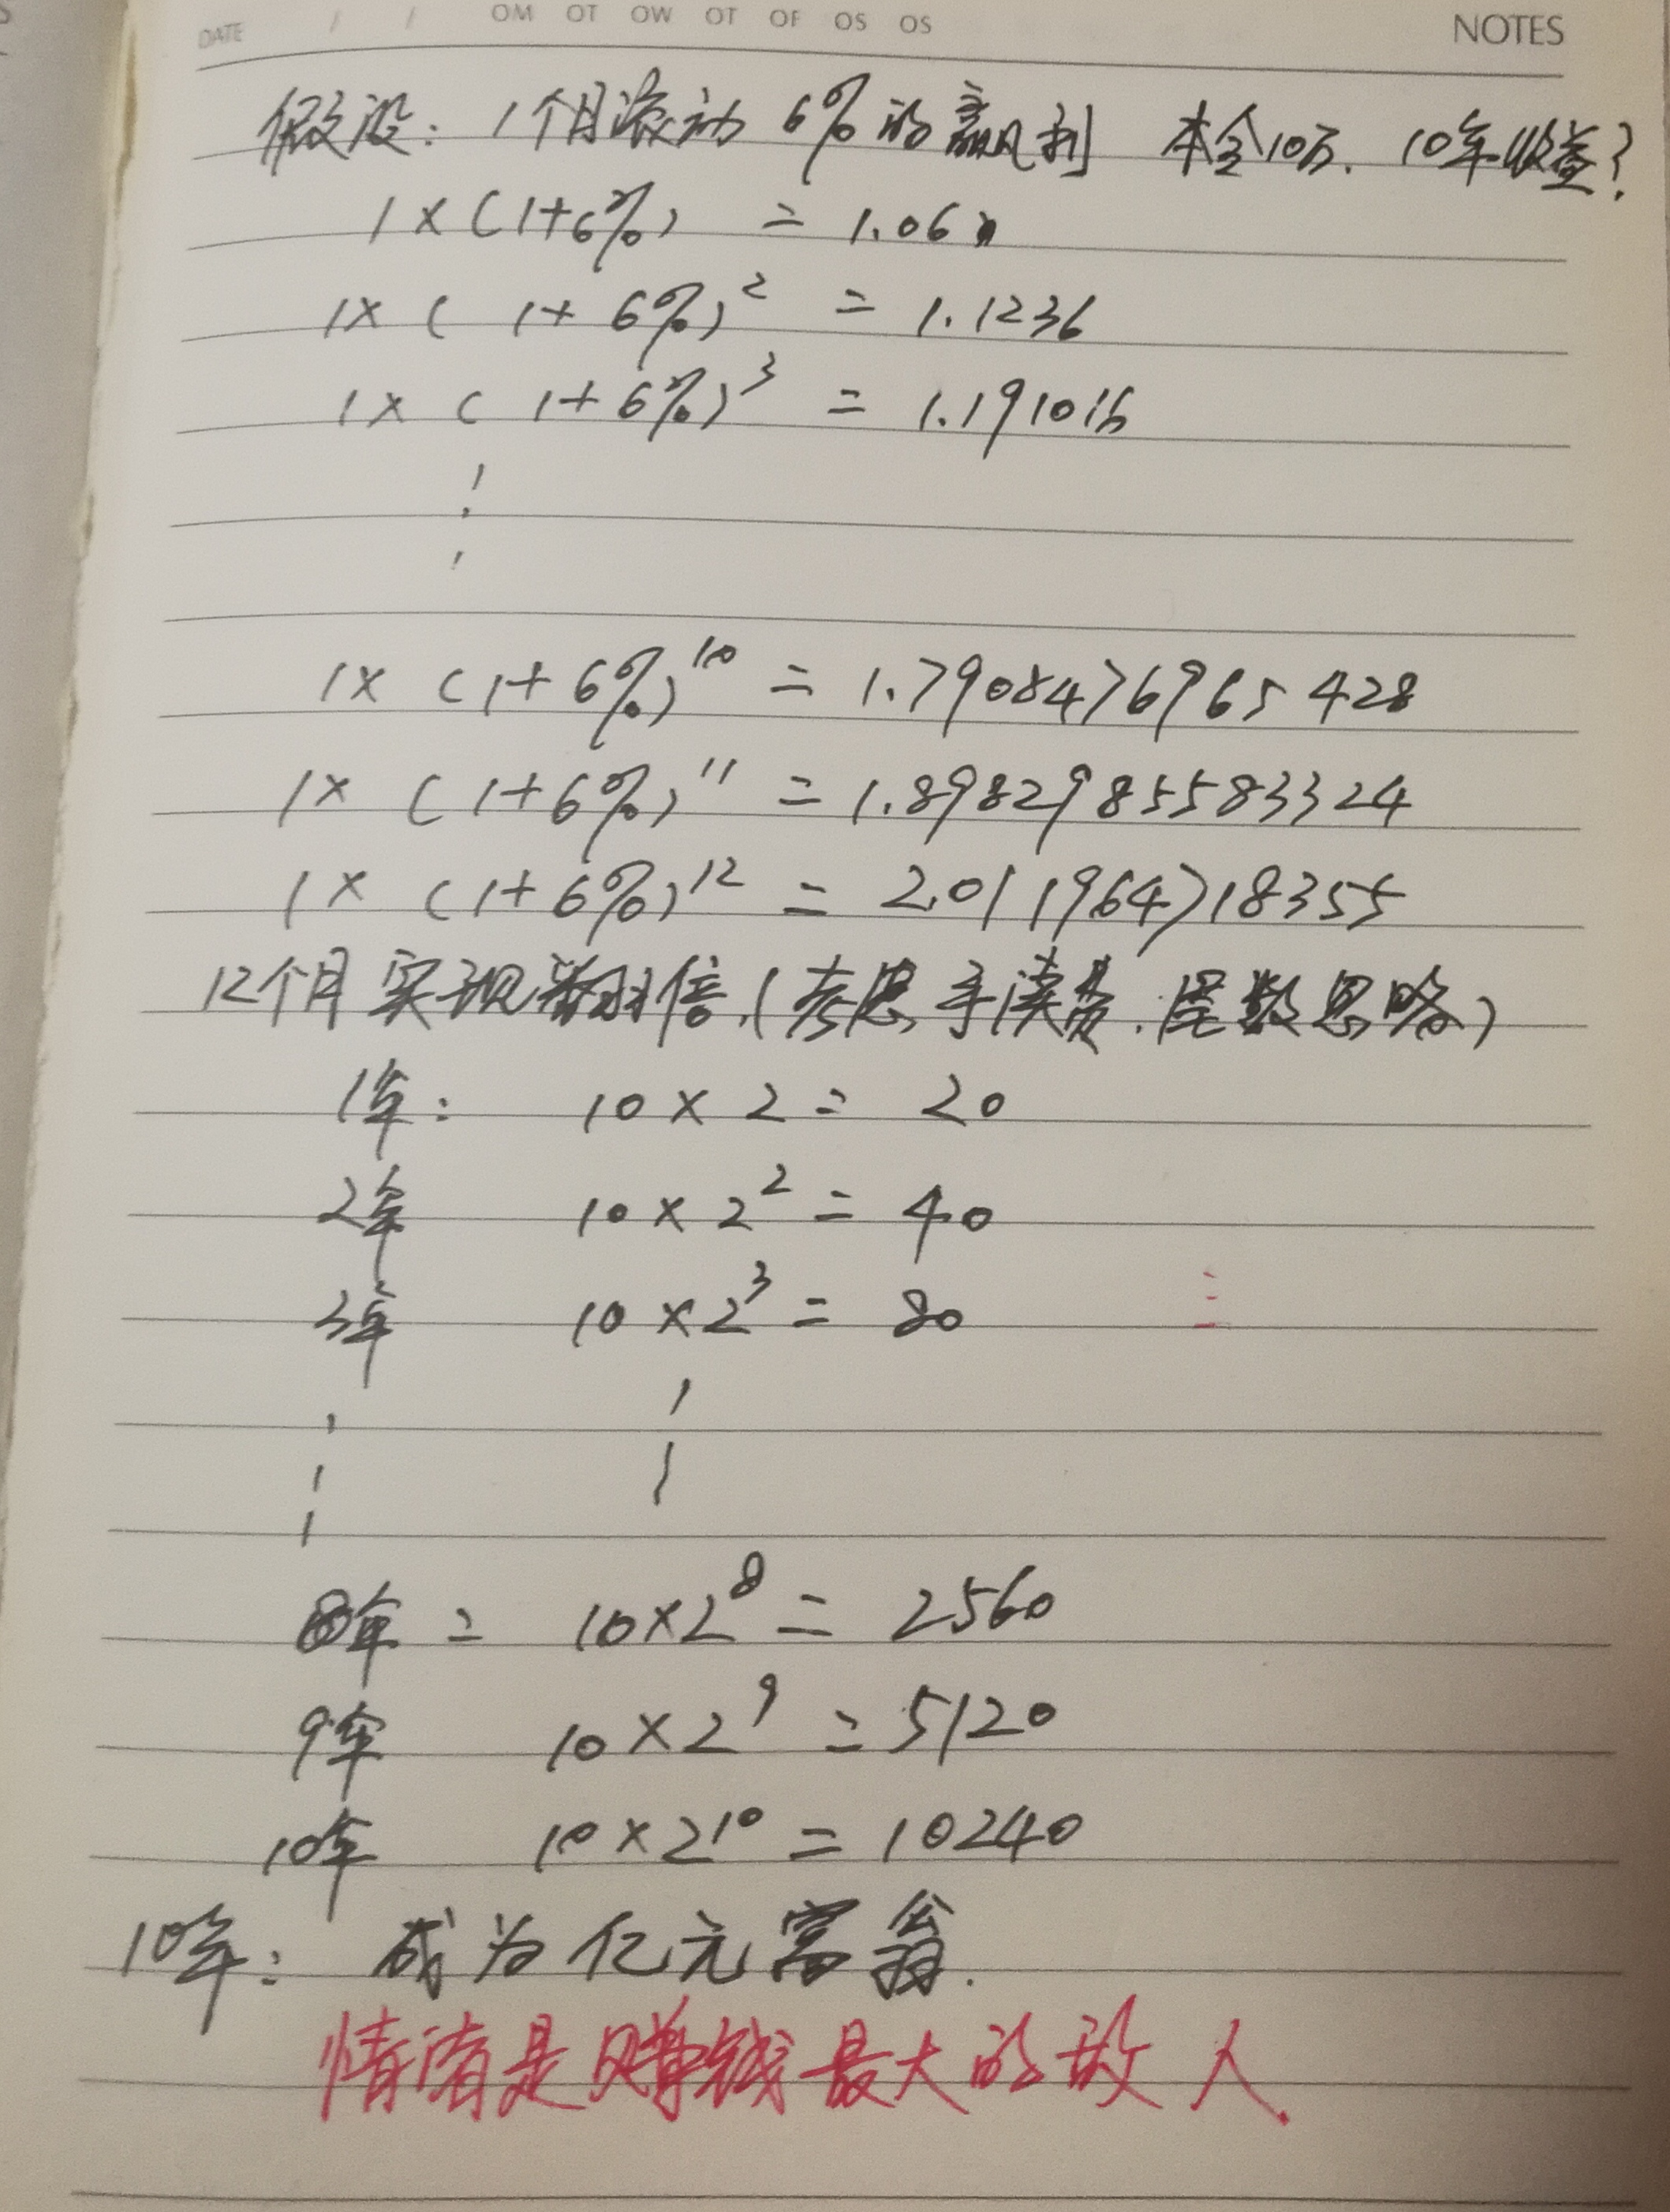 DATE / / OM OT OW OT OF OS OS NOTES
假设: 1个月滚动 6%的赢利 本金10万. 10年收益?
1×(1+6%) = 1.06
1×(1+6%)² = 1.1236
1×(1+6%)³ = 1.191016
1×(1+6%)¹⁰ = 1.7908476965428
1×(1+6%)¹¹ = 1.8982985583324
1×(1+6%)¹² = 2.011964718355
12个月实现翻倍.(考虑手续费.尾数忽略)
1年: 10×2= 20
2年 10×2²= 40
3年 10×2³= 80
8年 = 10×2⁸= 2560
9年 10×2⁹= 5120
10年 10×2¹⁰=10240
10年: 成为亿元富翁.
情绪是赚钱最大的敌人.